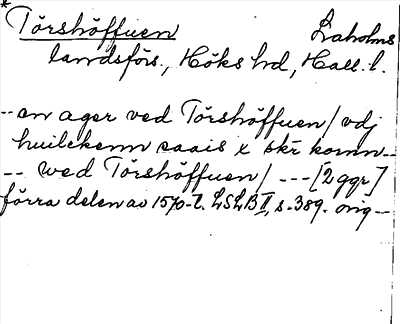 * Törshöffuen Laholms
landsförs., Höks hd, Hall. l.
-- en ager ved Törshöffuen / vdj
huilckenn saais x skr komn --
-- wed Törshöffuen / --- [2 ggr]
förra delen av 1570-t. LSLB II, s. 389. orig --